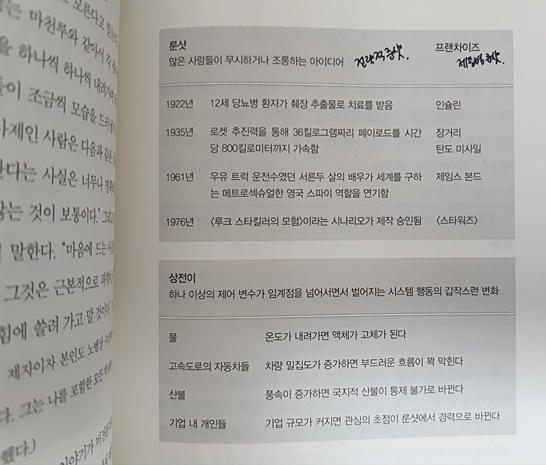 모른다고
는 마천루와 같아서 각
을 하나씩 하나씩 내려가며
들이 조금씩 모습을 드러
사제인 사람은 다음과 같은
한다는 사실은 너무나
않는 것이 보통이다."
말한다. "마음에 드는
그것은 근본적으로
힘에 쓸려 가고 말 것이
제자이자 본인도 노벨상
다. 그는 나를 포함한 모든
했다.)
이야기가
룬샷
많은 사람들이 무시하거나 조롱하는 아이디어 전략적 룬샷
프랜차이즈
제품형 룬샷
1922년 12세 당뇨병 환자가 췌장 추출물로 치료를 받음 인슐린
1935년 로켓 추진력을 통해 36킬로그램짜리 페이로드를 시간 장거리
당 800킬로미터까지 가속함 탄도 미사일
1961년 우유 트럭 운전수였던 서른두 살의 배우가 세계를 구하 제임스 본드
는 메트로섹슈얼한 영국 스파이 역할을 연기함
1976년 〈루크 스타킬러의 모험〉이라는 시나리오가 제작 승인됨 〈스타워즈〉
상전이
하나 이상의 제어 변수가 임계점을 넘어서면서 벌어지는 시스템 행동의 갑작스런 변화
물 온도가 내려가면 액체가 고체가 된다
고속도로의 자동차들 차량 밀집도가 증가하면 부드러운 흐름이 꽉 막힌다
산불 풍속이 증가하면 국지적 산불이 통제 불가로 바뀐다
기업 내 개인들 기업 규모가 커지면 관심의 초점이 룬샷에서 경력으로 바뀐다